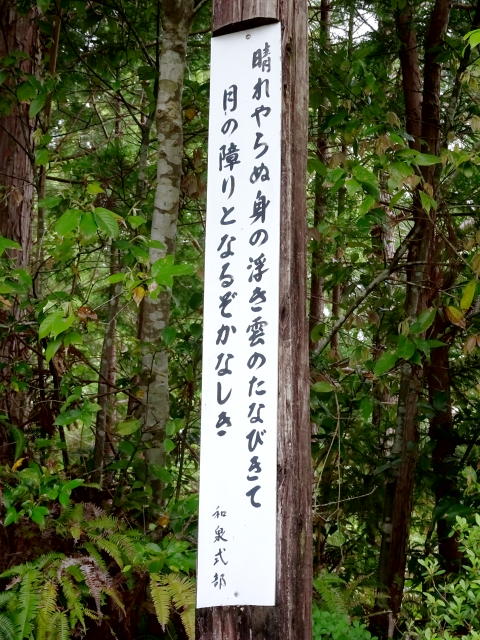 晴れやらぬ身の浮き雲のたなびきて
月の障りとなるぞかなしき
和泉式部